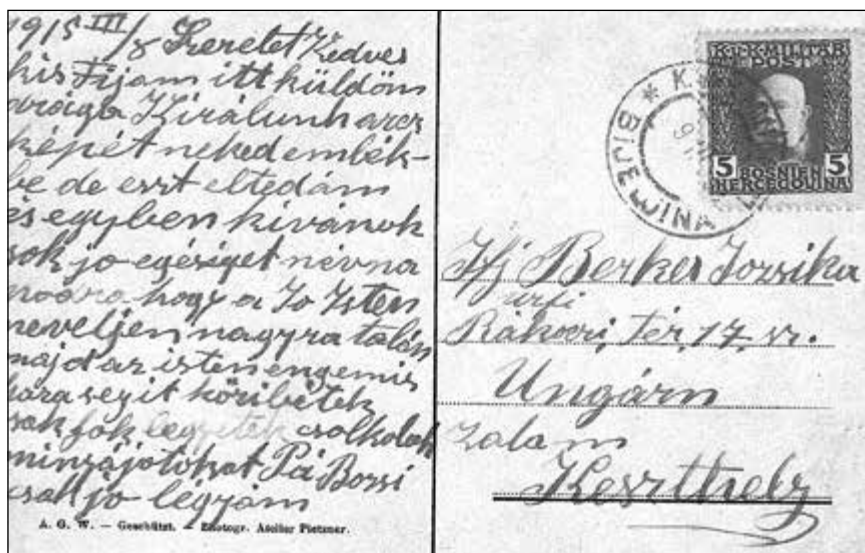 1915 III/8 Szeretet Kedves
kis Fijam itt küldöm
Királunk arcz
képét neked emlék-
be de eszt eltedám
és egyben kivánok
sok jo egésiget névna
hogy a Jo Isten
neveljen nagyra talán
majd az isten engemis
haza segit köribétek
csak jok legyetek csolkolak
minzájotokat Pá Borsi
csak jo légy
A. G. W. — Geschützt. — Photogr. Atelier Pietzner.
K.u.K. MILITÄR
POST
5 BOSNIEN 5
HERCEGOVINA
* K
BIJELJINA
Ifj Berkes Jozsika
urfi
Rákoczi, tér, 17, sz.
Ungárn
Zala m
Keszthely